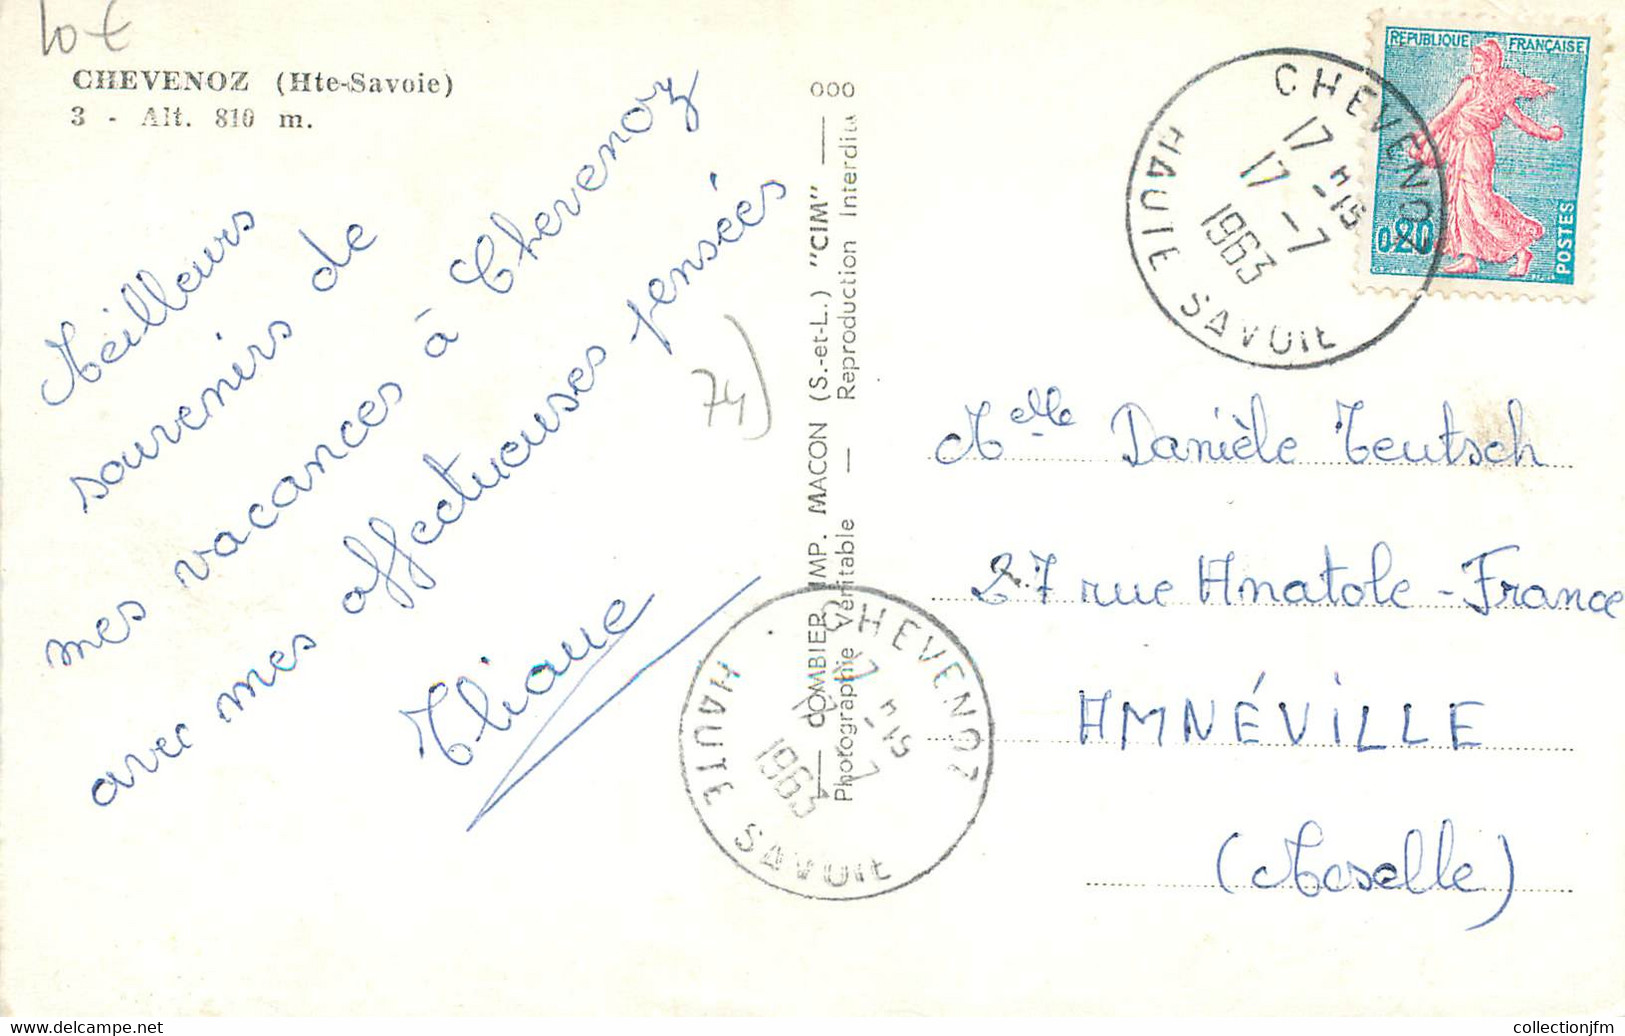 10 €
CHEVENOZ (Hte-Savoie)
3 - Alt. 810 m.
Meilleurs
souvenirs de
mes vacances à Chevenoz
avec mes affectueuses pensées
74)
COMBIER IMP. MACON (S.-et-L.) "CIM" — 000
Photographie Véritable — Reproduction Interdite
CHEVENOZ
17 H -15
17 -7
1963
HAUTE SAVOIE
REPUBLIQUE FRANÇAISE
0,20
POSTES
Melle Danièle Teutsch
27 rue Anatole-France
AMNÉVILLE
(Moselle)
CHEVENOZ
17 H -15
17 -7
1963
HAUTE SAVOIE
collectionjfm